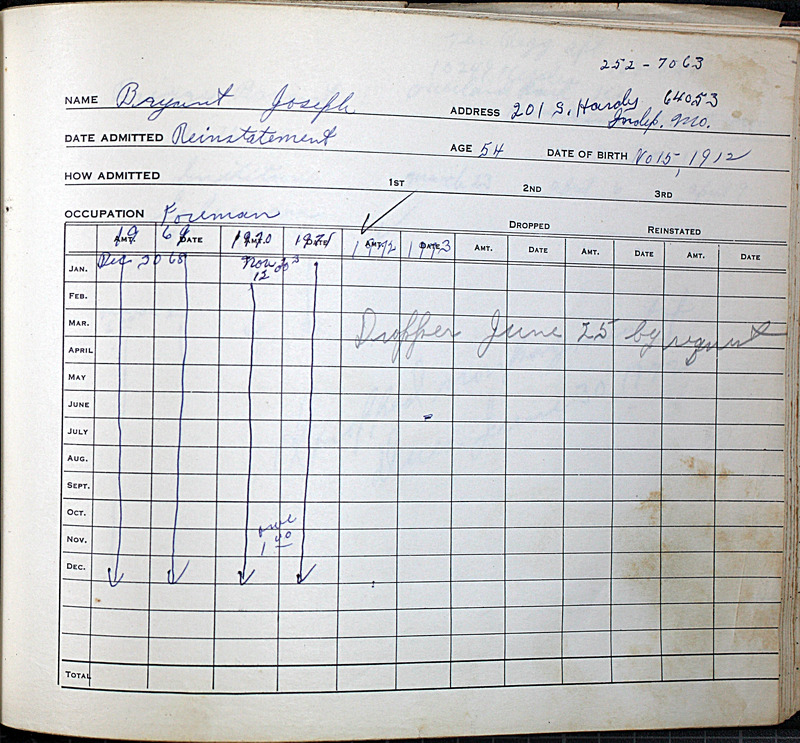 252-7063
NAME Bryant Joseph ADDRESS 201 S. Hardy 64053
Indep. Mo.
DATE ADMITTED Reinstatement AGE 54 DATE OF BIRTH No 15, 1912
HOW ADMITTED 1ST 2ND 3RD
OCCUPATION Foreman DROPPED REINSTATED
AMT. DATE AMT. DATE AMT. DATE AMT. DATE AMT. DATE AMT. DATE
19 69 1970 1971 1972 1973
JAN. Dec 20 68 Nov
12
FEB.
MAR. Dropper June 25 by request
APRIL
MAY
JUNE
JULY
AUG.
SEPT.
OCT.
NOV. 1 40
DEC.
TOTAL